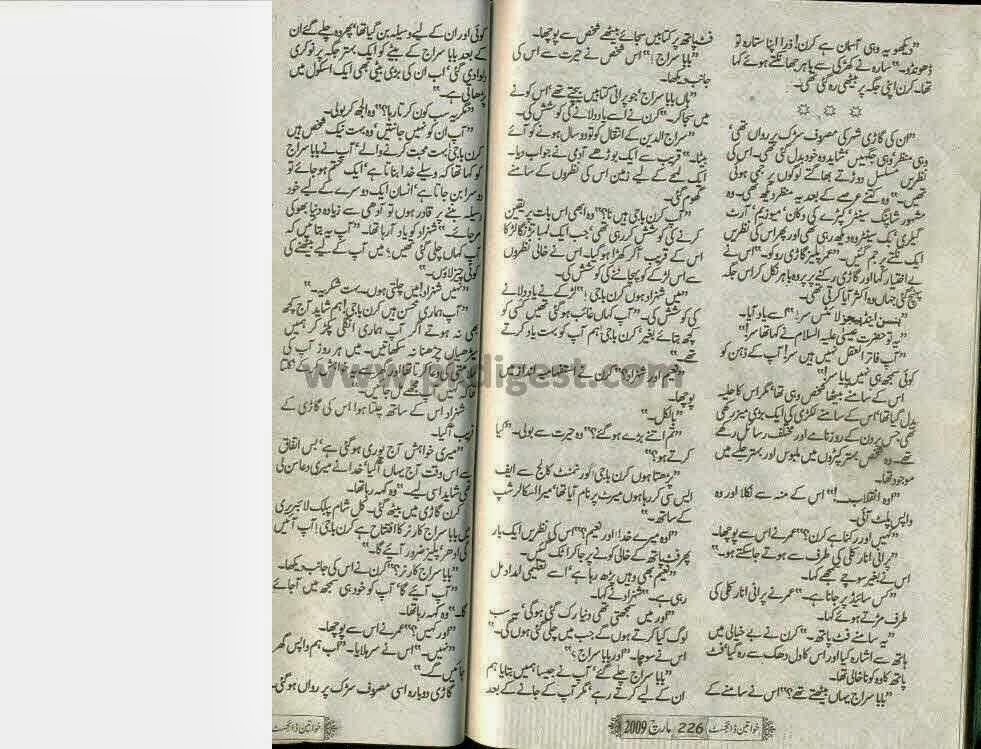 ”دیکھو یہ وہی آسمان ہے کرن! ذرا اپنا ستارہ تو
ڈھونڈو۔“ سارہ نے کھڑکی سے باہر جھانکتے ہوئے کہا
تھا۔ کرن اپنی جگہ پر بیٹھی رہ گئی تھی۔
”ان کی گاڑی شہر کی مصروف سڑک پر رواں تھی‘
وہی منظر‘ وہی جگہیں‘ شاید وہ خود بدل گئی تھی۔ اس کی
نظریں مسلسل دوڑتے بھاگتے لوگوں پر جمی ہوئی
تھیں۔“ وہ کتنے عرصے کے بعد یہ منظر دیکھ تھی۔ وہ
مشہور شاپنگ سینٹر‘ کپڑے کی دکان‘ میوزیم‘ آرٹ
گیلری‘ بک سینٹر وہ دیکھ رہی تھی اور پھر اس کی نظریں
ایک نکتے پر جم گئیں۔ ”عمر پلیز گاڑی روکو۔“ اس نے
بے اختیار کہا اور گاڑی رکنے پر وہ باہر نکل کر اس جگہ
پہنچ گئی جہاں وہ اکثر آیا کرتی تھی۔
لائٹس سر!“ اسے یاد آیا۔
”یہ تو حضرت عیسیٰ علیہ السلام نے کہا تھا سر!“
”آپ فاتر العقل نہیں ہیں سر! آپ کے ذہن کو
کوئی سمجھ ہی نہیں پایا سر!“
اس کے سامنے بیٹھا شخص وہی تھا‘ مگر اس کا حلیہ
بدل گیا تھا‘ اس کے سامنے لکڑی کی ایک بڑی میز رکھی
تھی جس پر دن کے روزنامے اور مختلف رسائل رکھے
تھے۔ وہ شخص بہتر کپڑوں میں ملبوس اور بہتر حلیے میں
موجود تھا۔
”اوہ انقلاب۔۔!“ اس کے منہ سے نکلا اور وہ
واپس پلٹ آئی۔
”کہیں اور رکنا ہے کرن؟“ عمر نے اس سے پوچھا۔
”پرانی انار کلی کی طرف سے ہوتے جا سکتے ہو۔“
اس نے بغیر سوچے سمجھے کہا۔
”کس سائیڈ پر جانا ہے۔“ عمر نے پرانی انار کلی کی
طرف مڑتے ہوئے کہا۔
”یہ سامنے فٹ پاتھ۔“ کرن نے بے خیالی میں
ہاتھ سے اشارہ کیا اور اس کا دل دھک سے رہ گیا‘ فٹ
پاتھ کا وہ کونا خالی تھا۔
”بابا سراج یہاں بیٹھتے تھے؟“ اس نے سامنے کے
فٹ پاتھ پر کتابیں سجائے بیٹھے شخص سے پوچھا۔
”بابا سراج!“ اس شخص نے حیرت سے اس کی
جانب دیکھا۔
”ہاں بابا سراج‘ جو پرانی کتابیں بیچتے تھے‘ اس کونے
میں سجا کر۔“ کرن نے اسے یاد دلانے کی کوشش کی۔
”سراج الدین کے انتقال کو تو دو سال ہونے کو آئے
بیٹا۔“ قریب سے ایک بوڑھے آدمی نے جواب دیا۔
ایک لمحے کے لیے زمین اس کی نظروں کے سامنے
گھوم گئی۔
”آپ کرن باجی ہیں نا؟“ وہ ابھی اس بات پر یقین
کرنے کی کوشش کر رہی تھی‘ جب ایک لمبا تڑنگا لڑکا
اس کے قریب آ کر کھڑا ہو گیا۔ اس نے خالی نظروں
سے اس لڑکے کو پہچاننے کی کوشش کی۔
”میں شہزاد ہوں کرن باجی!“ لڑکے نے یاد دلانے
کی کوشش کی۔ ”آپ کہاں غائب ہو گئی تھیں کسی کو
کچھ بتائے بغیر‘ کرن باجی! ہم آپ کو بہت یاد کرتے
تھے۔“
”نعیم اور شہزاد؟“ کرن نے استفہامیہ انداز میں
پوچھا۔
”بالکل۔“
”تم اتنے بڑے ہو گئے؟“ وہ حیرت سے بولی۔ ”کیا
کرتے ہو؟“
”پڑھتا ہوں کرن باجی! گورنمنٹ کالج سے ایف
ایس سی کر رہا ہوں میرٹ پر نام آیا تھا‘ میرا اسکالر شپ
کے ساتھ۔“
”اوہ میرے خدا! اور نعیم؟“ اس کی نظریں ایک بار
پھر فٹ پاتھ کے خالی کونے پر جا کر اٹک گئیں۔
”نعیم بھی وہیں پڑھ رہا ہے‘ اسے تعلیمی امداد مل
رہی ہے۔“ شہزاد نے کہا۔
”اور میں سمجھتی تھی دنیا رک گئی ہو گی‘ یہ سب
لوگ کیا کرتے ہوں گے جب میں چلی گئی ہوں گی۔“
اس نے سوچا۔ ”اور بابا سراج؟“
”بابا سراج چلے گئے‘ آپ نے جیسا ہمیں بتایا ہم
ان کے لیے کرتے رہے‘ مگر آپ کے جانے کے بعد
کوئی اور ان کے لیے وسیلہ بن گیا تھا‘ پھر وہ چلے گئے ان
کے بعد بابا سراج کے بیٹے کو ایک بہتر جگہ پر نوکری
دلوا دی گئی‘ اب ان کی بڑی بیٹی بھی ایک اسکول میں
پڑھاتی ہے۔“
”مگر یہ سب کون کرتا رہا؟“ وہ الجھ کر بولی۔
”آپ ان کو نہیں جانتیں‘ وہ بہت نیک شخص ہیں
کرن باجی! بہت محبت کرنے والے‘ آپ نے بابا سراج
کو کہا تھا کہ وسیلے خدا بناتا ہے‘ ایک ختم ہو جائے تو
دوسرا بن جاتا ہے‘ انسان ایک دوسرے کے لیے خود
وسیلہ بننے پر قادر ہوں تو آدھی سے زیادہ دنیا بھوکی
مر جائے۔“ شہزاد کو یاد آ رہا تھا۔ ”آپ یہ بتائیں کہ
آپ کہاں چلی گئی تھیں‘ میں آپ کے لیے بیٹھنے کی
کوئی چیز لاؤں۔“
”نہیں شہزاد! میں چلتی ہوں۔ بہت شکریہ۔“
”آپ ہماری محسن ہیں کرن باجی! ہم شاید آج کچھ
بھی نہ ہوتے اگر آپ ہماری انگلی پکڑ کر ہمیں
سیڑھیاں چڑھنا نہ سکھاتیں۔ میں ہر روز آپ کی
شہزاد اس کے ساتھ چلتا ہوا اس کی گاڑی کے
قریب آ گیا۔
”میری خواہش آج پوری ہو گئی ہے‘ بس اتفاق
سے اس وقت آج یہاں آ گیا‘ خدا نے میری دعا سن لی
تھی شاید اسی لیے۔“ وہ کہہ رہا تھا۔
کرن گاڑی میں بیٹھ گئی۔ کل شام پبلک لائبریری
میں بابا سراج کارنر کا افتتاح ہے کرن باجی! آپ آئیں
گی ادھر‘ پلیز ضرور آئیے گا۔“
”بابا سراج کارنر؟“ کرن نے اس کی جانب دیکھا۔
”آپ آئیے گا‘ آپ کو خود ہی سمجھ میں آ جائے
گا۔“ وہ کہہ رہا تھا۔
”اور کہیں؟“ عمر نے اس سے پوچھا۔
”نہیں۔“ اس نے سر ہلایا۔ ”اب ہم واپس گھر
جائیں گے۔“
گاڑی دوبارہ اسی مصروف سڑک پر رواں ہو گئی۔
خواتین ڈائجسٹ 226 مارچ 2009
خواتین ڈائجسٹ